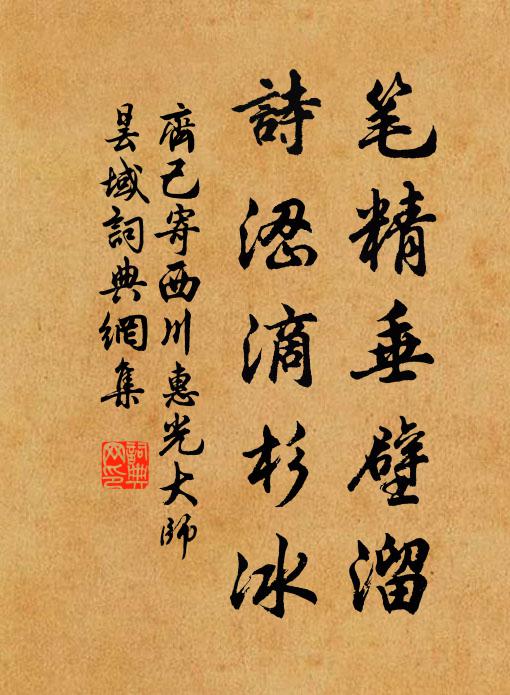 笔精垂壁溜
詩涩滴杉冰
齊己寄西川惠光大師
曇域詞典網集
詞典
网印